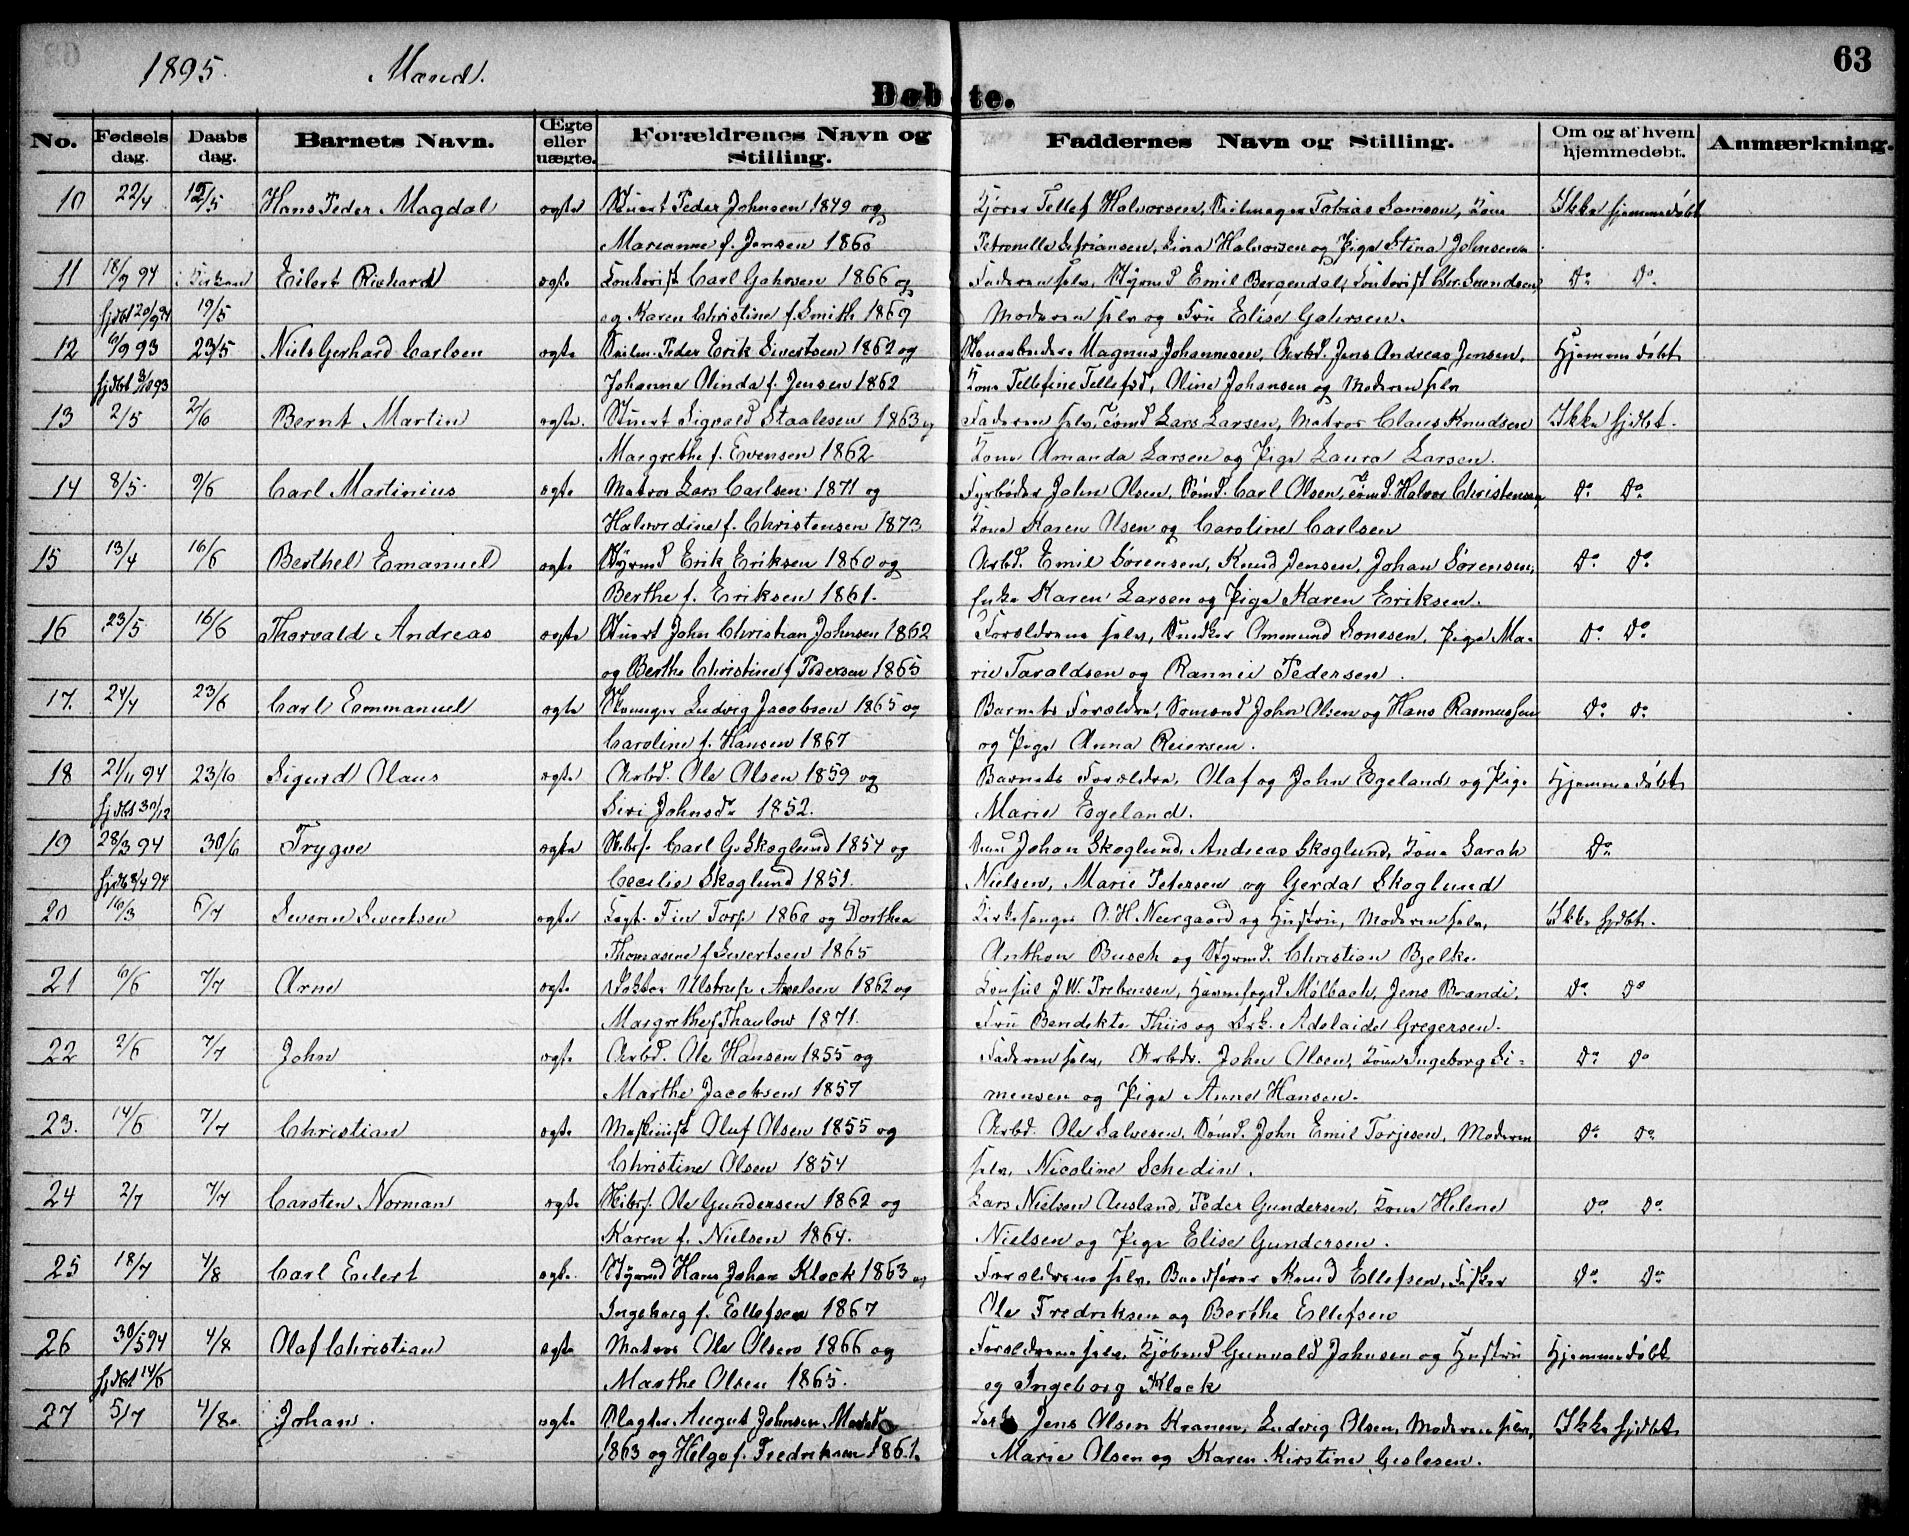 1895. Mænd. 63
Døbte.
No. Fødsels dag. Daabs dag. Barnets Navn. Ægte eller uægte. Forældrenes Navn og Stilling. Faddernes Navn og Stilling. Om og af hvem hjemmedøbt. Anmærkning.
10 22/4 12/5 Hans Peder Magdal ægte Stuert Peder Johnsen 1849 og Kjører Tellef Halvorsen, Seilmager Tobias Samson, Kone Ikke hjemmedøbt
Marianne f. Jensen 1860 Petronelle Sivriansen, Sina Halvorsen og Pige Stina Johnsen
11 18/9 94 i Kirken Eilert Richard ægte Kontorist Carl Gahrsen 1866 og Faderen selv, Styrmd Emil Bergendal, Kontorist Chr. Svendsen, Do Do
hjdbt 20/9 94 19/5 og Karen Christine f. Smith 1869 Moderen selv og Fru Elise Gahrsen.
12 6/9 93 23/5 Niels Gerhard Carlsen ægte Seilm. Peder Erik Sivertsen 1862 og Magnus Johannesen, Arbd. Jens Andreas Jensen, Hjemmedøbt
hjdbt 3/10 93 Johanne Olinda f. Jensen 1862 Kone Tellefine Tellefsd, Oline Johansen og Moderen selv
13 2/5 2/6 Bernt Martin ægte. Stuert Sigvald Staalesen 1863 og Faderen selv, Tømd Lars Larsen, Matros Claus Knudsen Ikke hjdbt.
Margrethe f. Evensen 1862 Kone Amanda Larsen og Pige Laura Larsen.
14 8/5. 9/6 Carl Martinius ægte Matros Lars Carlsen 1871 og Fyrbøder John Olsen, Sømd. Carl Olsen, Tømd. Halvor Christensen, Do Do
Halvordine f. Christensen 1873 Kone Karen Olsen og Caroline Carlsen
15 13/4 16/6 Berthel Emanuel ægte Styrmd Erik Eriksen 1860 og Arbd. Emil Sørensen, Knud Jensen, Johan Sørensen, Do Do
Berthe f. Eriksen 1861. Enke Karen Larsen og Pige Karen Eriksen.
16 23/5 16/6 Thorvald Andreas ægte Stuert John Christian Johnsen 1862 Forældrene selv, Snedker Ommund Sonesen, Pige Ma- Do Do
og Berthe Christine f Pedersen 1865 rie Taraldsen og Rannei Pedersen.
17. 24/4 23/6 Carl Emmanuel ægte Ludvig Jacobsen 1865 og Barnets Forældre, Sømænd John Olsen og Hans Rasmussen Do Do
Caroline f. Hansen 1867 og Pige Anna Reiersen.
18 21/11 94 23/6 Sigurd Olaus ægte Arbd. Ole Olsen 1859 og Barnets Forældre, Olaf og John Egeland og Pige Hjemmedøbt
hjdbt 30/12 Siri Johnsdr 1852. Marie Egeland.
19 28/3 94 30/6 Trygve ægte Skibsf. Carl G. Skoglund 1854 og Johan Skoglund, Andreas Skoglund, Kone Sarah Do
hjdb 8/4 94 Cecilie Skoglund 1851. Nielsen, Marie Petersen og Gerda Skoglund
20 16/3 6/7 Severin Sivertsen ægte Capt. Fin Torp 1860 og Dorthea Kirkesanger O. H. Neergaard og Hustru, Moderen selv, Ikke hjdbt.
Thomasine f Sivertsen 1865 Anthon Busch og Styrmd. Christian Bjelke.
21 6/6 7/7 Arne ægte Doktor Ulstrup Axelsen 1862 og Konsul J. W. Prebensen, Havnefoged Mølbach, Jens Brandi, Do Do
Margrethe f Thaulow 1871. Fru Bendikte Thiis og Frk. Adelaide Gregersen.
22 2/6 7/7 John ægte Arbd. Ole Hansen 1855 og Faderen selv, Arbdr. John Olsen, Kone Ingeborg Si= Do Do
Marthe Jacobsen 1857 mensen og Pige Anne Hansen.
23. 14/6 7/7 Christian ægte Maskinist Oluf Olsen 1855 og Arbd. Ole Salvesen, Sømd. John Emil Torjesen, Moderen Do Do
Christine Olsen 1854 selv, Nicoline Schedin.
24 2/7 7/7 Carsten Norman ægte Skibsf. Ole Gundersen 1862 og Lars Nielsen Ausland, Peder Gundersen, Kone Helene Do Do
Karen f. Nielsen 1864. Nielsen og Pige Elise Gundersen.
25 18/7 4/8 Carl Eilert ægte. Styrmd Hans Johan Klock 1863 og Forældrene selv, Baadfører Knud Ellefsen, Fisker Do Do
Ingeborg f. Ellefsen 1867 Ole Fredriksen og Berthe Ellefsen
26 30/5 94 4/8 Olaf Christian ægte Matros Ole Olsen 1866 og Forældrene selv, Kjøbmd Gunvald Johnsen og Hustru Hjemmedøbt
hjdbt 14/6 Marthe Olsen 1865. og Ingeborg Klock
27 5/7 4/8. Johan. ægte Slagter August Johnsen Jens Olsen Kranen, Ludvig Olsen, Moderen selv, Ikke hjdbt.
1863 og Helga f. Fredriksen 1861. Marie Olsen og Karen Kirstine Geslesen.